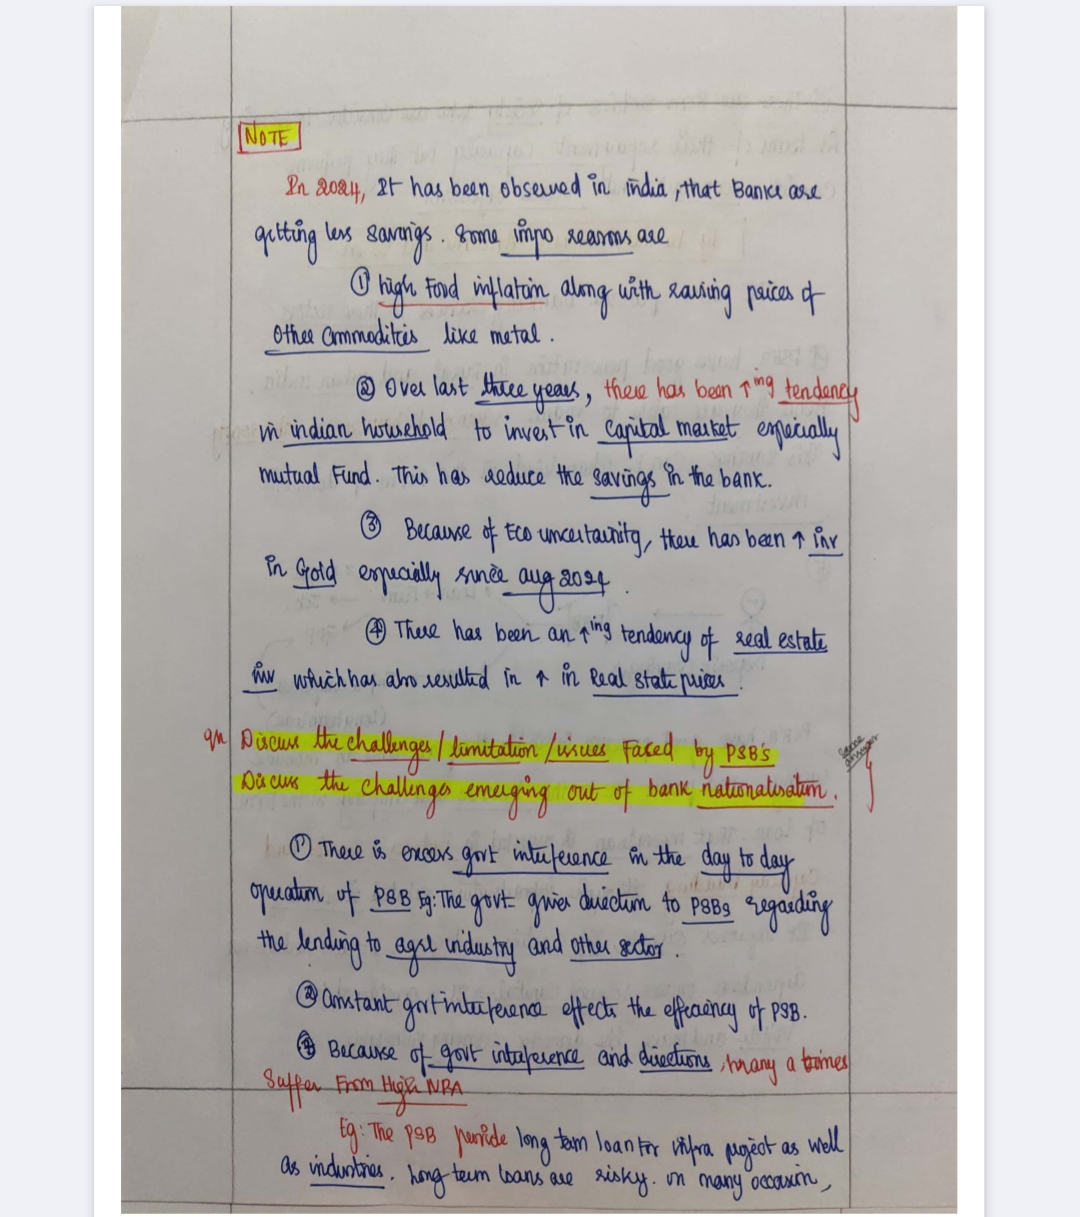 NOTE
In 2024, It has been observed in india, that Banks are
getting less savings. Some impo reasons are
① high Food inflatoin along with raising prices of
Other Commodities like metal.
② Over last three years, there has been ↑ing tendency
in indian household to invest in Capital market especially
mutual Fund. This has reduce the savings in the bank.
③ Because of Eco uncertainity, there has been ↑ inv
in Gold especially since aug 2024.
④ There has been an ↑ing tendency of real estate
inv which has also resulted in ↑ in Real state prices.
qn Discuss the challenges / limitation / issues Faced by PSB's
Discuss the challenges emerging out of bank nationalisation.
Same answer
① There is excess govt interference in the day to day
operation of PSB Eg: The govt gives direction to PSBs regarding
the lending to agri industry and other sector.
② Constant govt interference effects the effeciency of PSB.
③ Because of govt interference and directions, many a times
Suffer From High NPA
Eg: The PSB provide long term loan for infra project as well
as industries. Long term loans are risky. in many occasion,